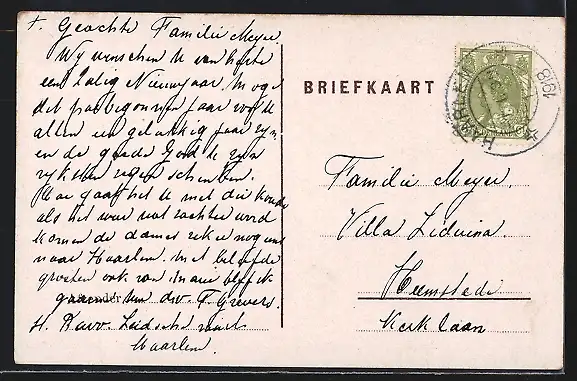 +. Geachte Familie Meyer.
Wij wenschen U van harte
een Zalig Nieuwjaar. Moge
dit pas begonnen jaar voor U
allen een gelukkig jaar zijn
en de goede God U zijn
rijksten zegen schenken.
Hoe gaat het U met die koude
als het weer wat zachter word
komen de dames zeker nog eens
naar Haarlem. Met beleefde
groeten ook van blijf ik
gaarne Uw dw. F. Grevers.
H. Bavo. Leidsche vaart
Haarlem.
BRIEFKAART
HAARLEM
1918
Familie Meyer.
Villa Liduina.
Heemstede
Kerklaan